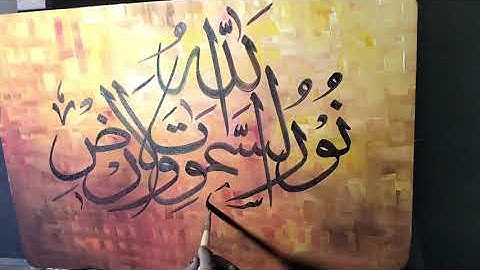 اَللهُ
نُوْرُ السَّمٰوٰتِ وَالْاَرْضِ